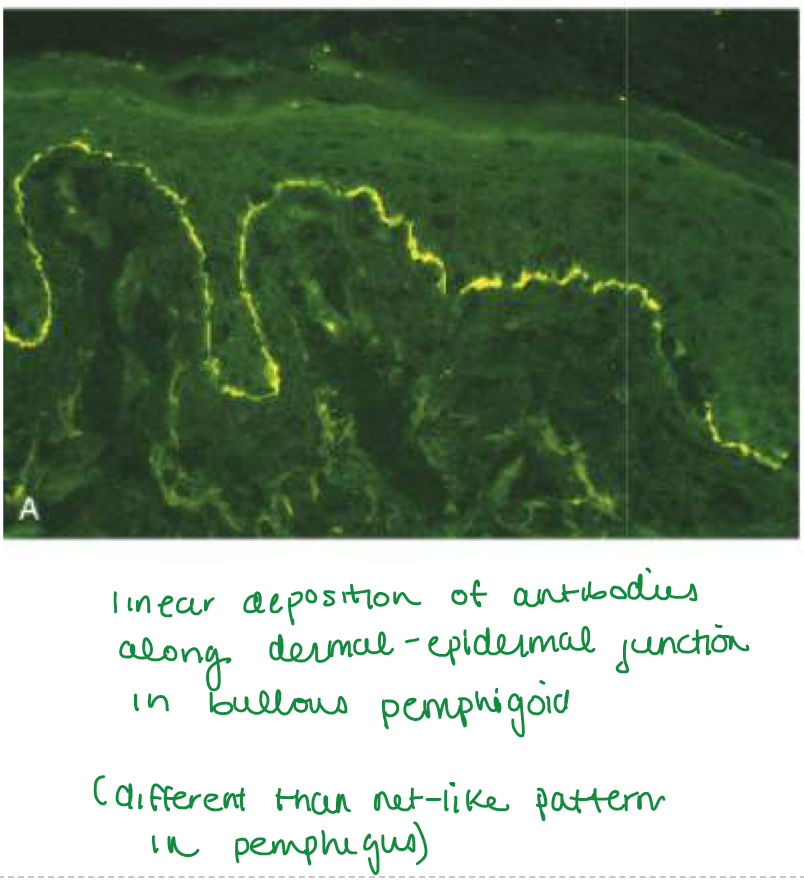 A
linear deposition of antibodies
along dermal-epidermal junction
in bullous pemphigoid
(different than net-like pattern
in pemphigus)